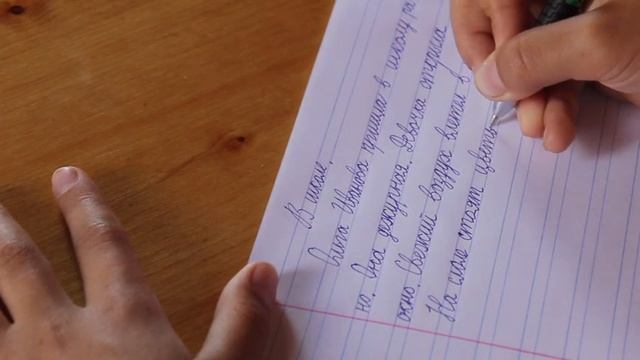 В школе.
Оля Иванова пришла в школу ра
но. Она дежурная. Девочка открыла
окно. Свежий воздух влетел в
На столе стоят цветы